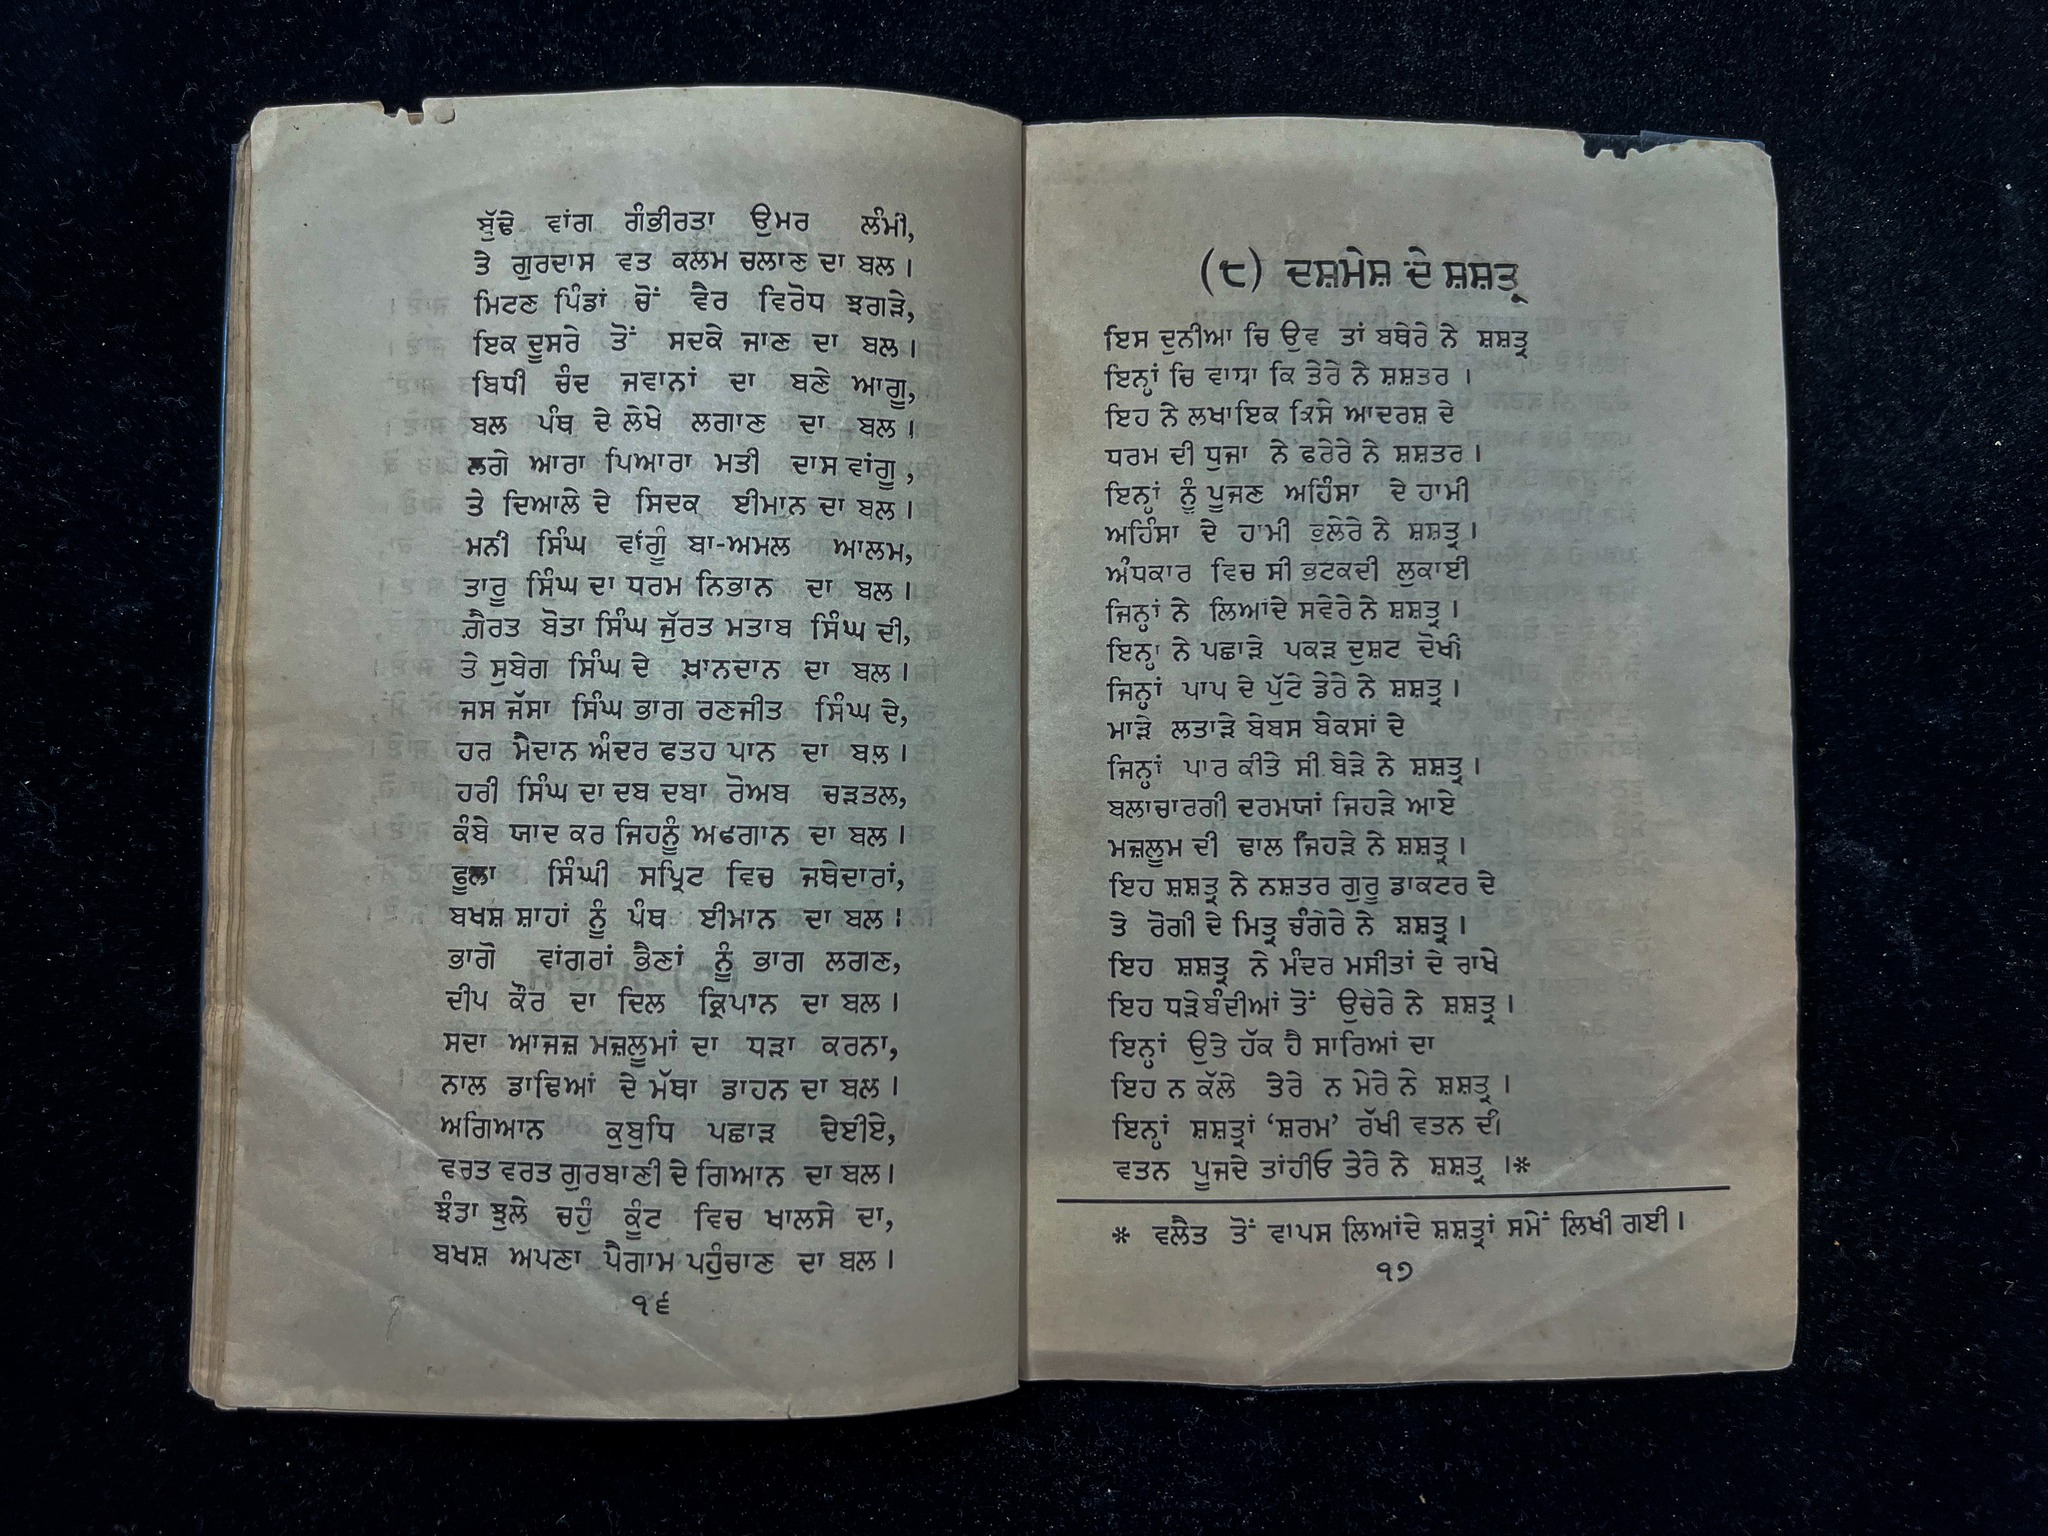 ਬੁੱਢੇ ਵਾਂਗ ਗੰਭੀਰਤਾ ਉਮਰ ਲੰਮੀ,
ਤੇ ਗੁਰਦਾਸ ਵਤ ਕਲਮ ਚਲਾਣ ਦਾ ਬਲ।
ਮਿਟਣ ਪਿੰਡਾਂ ਚੋਂ ਵੈਰ ਵਿਰੋਧ ਝਗੜੇ,
ਇਕ ਦੂਸਰੇ ਤੋਂ ਸਦਕੇ ਜਾਣ ਦਾ ਬਲ।
ਬਿਧੀ ਚੰਦ ਜਵਾਨਾਂ ਦਾ ਬਣੇ ਆਗੂ,
ਬਲ ਪੰਥ ਦੇ ਲੇਖੇ ਲਗਾਣ ਦਾ ਬਲ।
ਲਗੇ ਆਰਾ ਪਿਆਰਾ ਮਤੀ ਦਾਸ ਵਾਂਗੂ,
ਤੇ ਦਿਆਲੇ ਦੇ ਸਿਦਕ ਈਮਾਨ ਦਾ ਬਲ।
ਮਨੀ ਸਿੰਘ ਵਾਂਗੂੰ ਬਾ-ਅਮਲ ਆਲਮ,
ਤਾਰੂ ਸਿੰਘ ਦਾ ਧਰਮ ਨਿਭਾਨ ਦਾ ਬਲ।
ਗ਼ੈਰਤ ਬੋਤਾ ਸਿੰਘ ਜੁੱਰਤ ਮਤਾਬ ਸਿੰਘ ਦੀ,
ਤੇ ਸੁਬੇਗ ਸਿੰਘ ਦੇ ਖ਼ਾਨਦਾਨ ਦਾ ਬਲ।
ਜਸ ਜੱਸਾ ਸਿੰਘ ਭਾਗ ਰਣਜੀਤ ਸਿੰਘ ਦੇ,
ਹਰ ਮੈਦਾਨ ਅੰਦਰ ਫਤਹ ਪਾਨ ਦਾ ਬਲ।
ਹਰੀ ਸਿੰਘ ਦਾ ਦਬ ਦਬਾ ਰੋਅਬ ਚੜਤਲ,
ਕੰਬੇ ਯਾਦ ਕਰ ਜਿਹਨੂੰ ਅਫਗਾਨ ਦਾ ਬਲ।
ਫੂਲਾ ਸਿੰਘੀ ਸਪ੍ਰਿਟ ਵਿਚ ਜਥੇਦਾਰਾਂ,
ਬਖਸ਼ ਸ਼ਾਹਾਂ ਨੂੰ ਪੰਥ ਈਮਾਨ ਦਾ ਬਲ।
ਭਾਗੋ ਵਾਂਗਰਾਂ ਭੈਣਾਂ ਨੂੰ ਭਾਗ ਲਗਣ,
ਦੀਪ ਕੌਰ ਦਾ ਦਿਲ ਕ੍ਰਿਪਾਨ ਦਾ ਬਲ।
ਸਦਾ ਆਜਜ਼ ਮਜ਼ਲੂਮਾਂ ਦਾ ਧੜਾ ਕਰਨਾ,
ਨਾਲ ਡਾਢਿਆਂ ਦੇ ਮੱਥਾ ਡਾਹਨ ਦਾ ਬਲ।
ਅਗਿਆਨ ਕੁਬੁਧਿ ਪਛਾੜ ਦੇਈਏ,
ਵਰਤ ਵਰਤ ਗੁਰਬਾਣੀ ਦੇ ਗਿਆਨ ਦਾ ਬਲ।
ਝੰਡਾ ਝੁਲੇ ਚਹੁੰ ਕੂੰਟ ਵਿਚ ਖਾਲਸੇ ਦਾ,
ਬਖਸ਼ ਅਪਣਾ ਪੈਗਾਮ ਪਹੁੰਚਾਣ ਦਾ ਬਲ।
੧੬
(੮) ਦਸ਼ਮੇਸ਼ ਦੇ ਸ਼ਸ਼ਤ੍ਰ
ਇਸ ਦੁਨੀਆ ਚਿ ਉਵ ਤਾਂ ਬਥੇਰੇ ਨੇ ਸ਼ਸ਼ਤ੍ਰ
ਇਨ੍ਹਾਂ ਚਿ ਵਾਧਾ ਕਿ ਤੇਰੇ ਨੇ ਸ਼ਸ਼ਤਰ।
ਇਹ ਨੇ ਲਖਾਇਕ ਕਿਸੇ ਆਦਰਸ਼ ਦੇ
ਧਰਮ ਦੀ ਧੁਜਾ ਨੇ ਫਰੇਰੇ ਨੇ ਸ਼ਸ਼ਤਰ।
ਇਨ੍ਹਾਂ ਨੂੰ ਪੂਜਣ ਅਹਿੰਸਾ ਦੇ ਹਾਮੀ
ਅਹਿੰਸਾ ਦੇ ਹਾਮੀ ਭੁਲੇਰੇ ਨੇ ਸ਼ਸ਼ਤ੍ਰ।
ਅੰਧਕਾਰ ਵਿਚ ਸੀ ਭਟਕਦੀ ਲੁਕਾਈ
ਜਿਨ੍ਹਾਂ ਨੇ ਲਿਆਂਦੇ ਸਵੇਰੇ ਨੇ ਸ਼ਸ਼ਤ੍ਰ।
ਇਨ੍ਹਾ ਨੇ ਪਛਾੜੇ ਪਕੜ ਦੁਸ਼ਟ ਦੋਖੀ
ਜਿਨ੍ਹਾਂ ਪਾਪ ਦੇ ਪੁੱਟੇ ਡੇਰੇ ਨੇ ਸ਼ਸ਼ਤ੍ਰ।
ਮਾੜੇ ਲਤਾੜੇ ਬੇਬਸ ਬੇਕਸਾਂ ਦੇ
ਜਿਨ੍ਹਾਂ ਪਾਰ ਕੀਤੇ ਸੀ ਬੇੜੇ ਨੇ ਸ਼ਸ਼ਤ੍ਰ।
ਬਲਾਚਾਰਗੀ ਦਰਮਯਾਂ ਜਿਹੜੇ ਆਏ
ਮਜ਼ਲੂਮ ਦੀ ਢਾਲ ਜਿਹੜੇ ਨੇ ਸ਼ਸ਼ਤ੍ਰ।
ਇਹ ਸ਼ਸ਼ਤ੍ਰ ਨੇ ਨਸ਼ਤਰ ਗੁਰੂ ਡਾਕਟਰ ਦੇ
ਤੇ ਰੋਗੀ ਦੇ ਮਿਤ੍ਰ ਚੰਗੇਰੇ ਨੇ ਸ਼ਸ਼ਤ੍ਰ।
ਇਹ ਸ਼ਸ਼ਤ੍ਰ ਨੇ ਮੰਦਰ ਮਸੀਤਾਂ ਦੇ ਰਾਖੇ
ਇਹ ਧੜੇਬੰਦੀਆਂ ਤੋਂ ਉਚੇਰੇ ਨੇ ਸ਼ਸ਼ਤ੍ਰ।
ਇਨ੍ਹਾਂ ਉਤੇ ਹੱਕ ਹੈ ਸਾਰਿਆਂ ਦਾ
ਇਹ ਨ ਕੱਲੇ ਤੇਰੇ ਨ ਮੇਰੇ ਨੇ ਸ਼ਸ਼ਤ੍ਰ।
ਇਨ੍ਹਾਂ ਸ਼ਸ਼ਤ੍ਰਾਂ ‘ਸ਼ਰਮ’ ਰੱਖੀ ਵਤਨ ਦੀ
ਵਤਨ ਪੂਜਦੇ ਤਾਂਹੀਓ ਤੇਰੇ ਨੇ ਸ਼ਸ਼ਤ੍ਰ।*
* ਵਲੈਤ ਤੋਂ ਵਾਪਸ ਲਿਆਂਦੇ ਸ਼ਸ਼ਤ੍ਰਾਂ ਸਮੇਂ ਲਿਖੀ ਗਈ।
੧੭